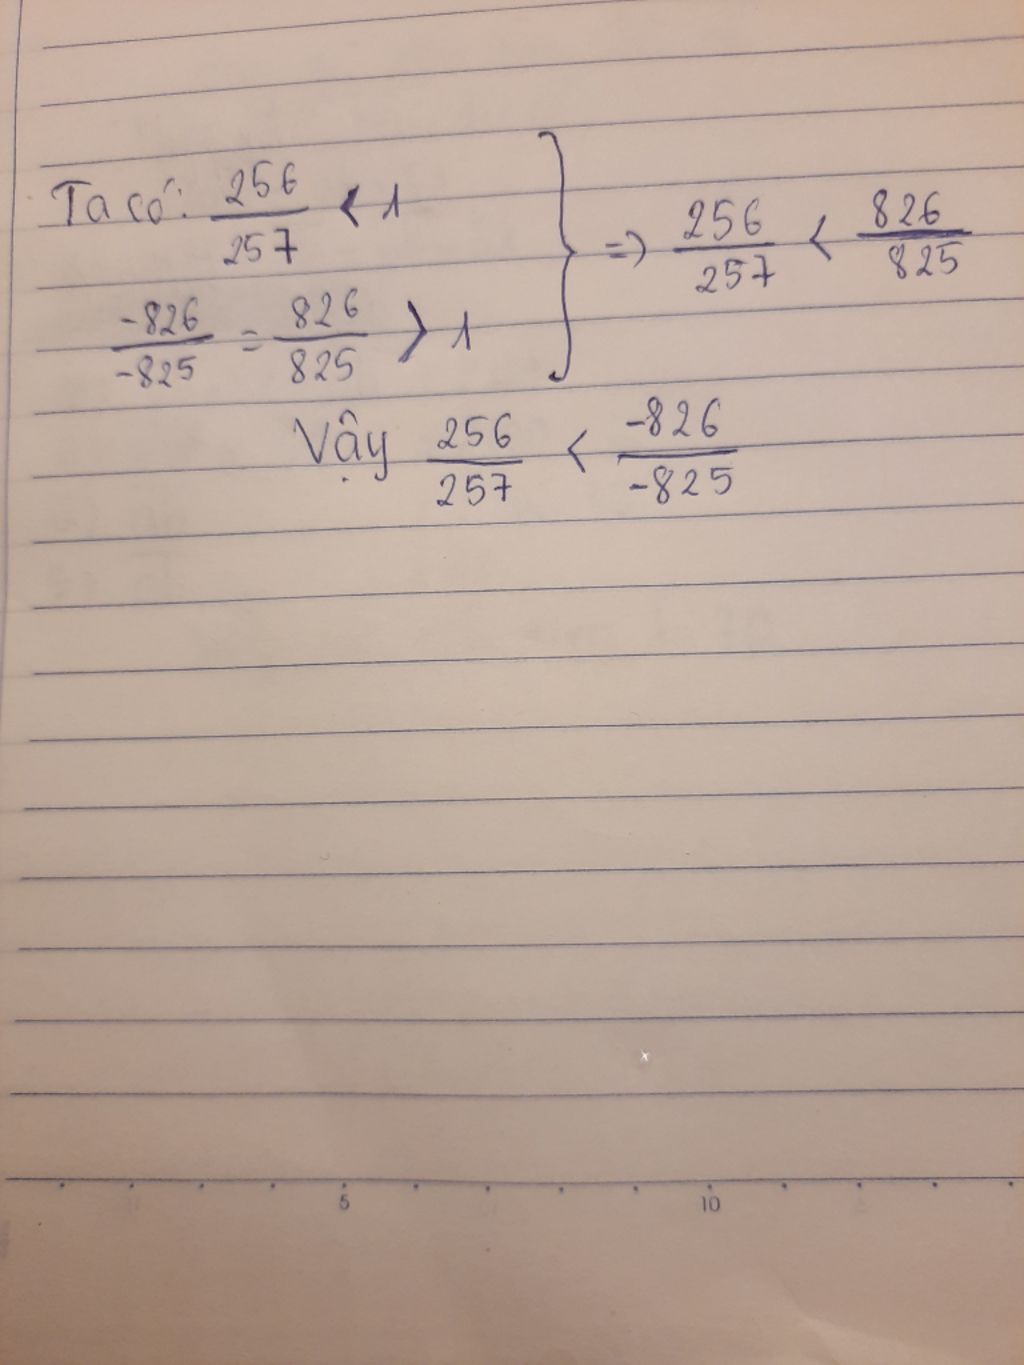 Ta có: 256/257 < 1
-826/-825 = 826/825 > 1
} => 256/257 < 826/825
Vậy 256/257 < -826/-825
5 10